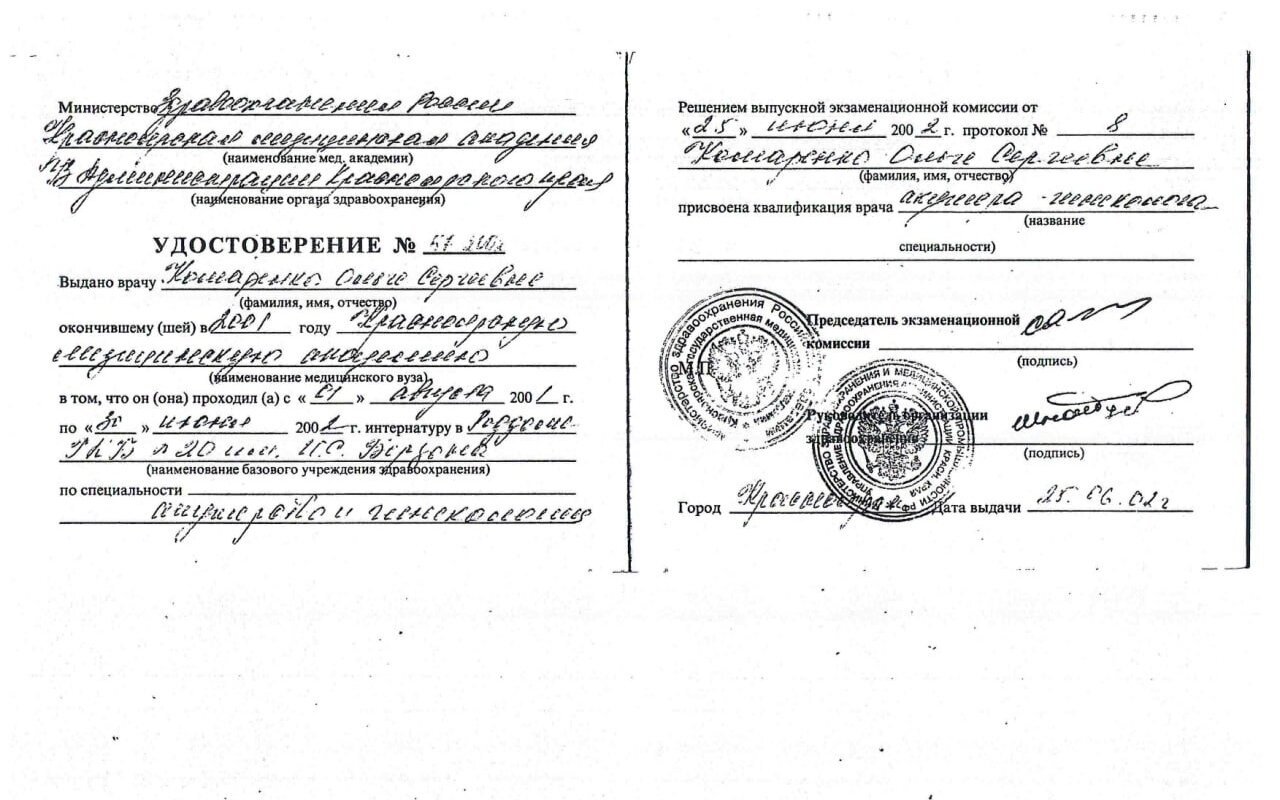 Министерство Здравоохранения России
Красноярская медицинская академия
(наименование мед. академии)
Администрации Красноярского края
(наименование органа здравоохранения)
УДОСТОВЕРЕНИЕ № 57-2002
Выдано врачу Комаренко Ольге Сергеевне
(фамилия, имя, отчество)
окончившему (шей) в 2001 году Красноярскую
медицинскую академию
(наименование медицинского вуза)
в том, что он (она) проходил (а) с « 01 » августа 2001 г.
по « 30 » июня 2002 г. интернатуру в Роддоме
ГКБ № 20 им. И.С. Берзона
(наименование базового учреждения здравоохранения)
по специальности
акушерство и гинекология
Решением выпускной экзаменационной комиссии от
« 25 » июня 2002 г. протокол № 8
Комаренко Ольге Сергеевне
(фамилия, имя, отчество)
присвоена квалификация врача акушера-гинеколога
(название
специальности)
Председатель экзаменационной
комиссии
(подпись)
М.П.
Руководитель организации
здравоохранения
(подпись)
Город Красноярск Дата выдачи 25.06.02г